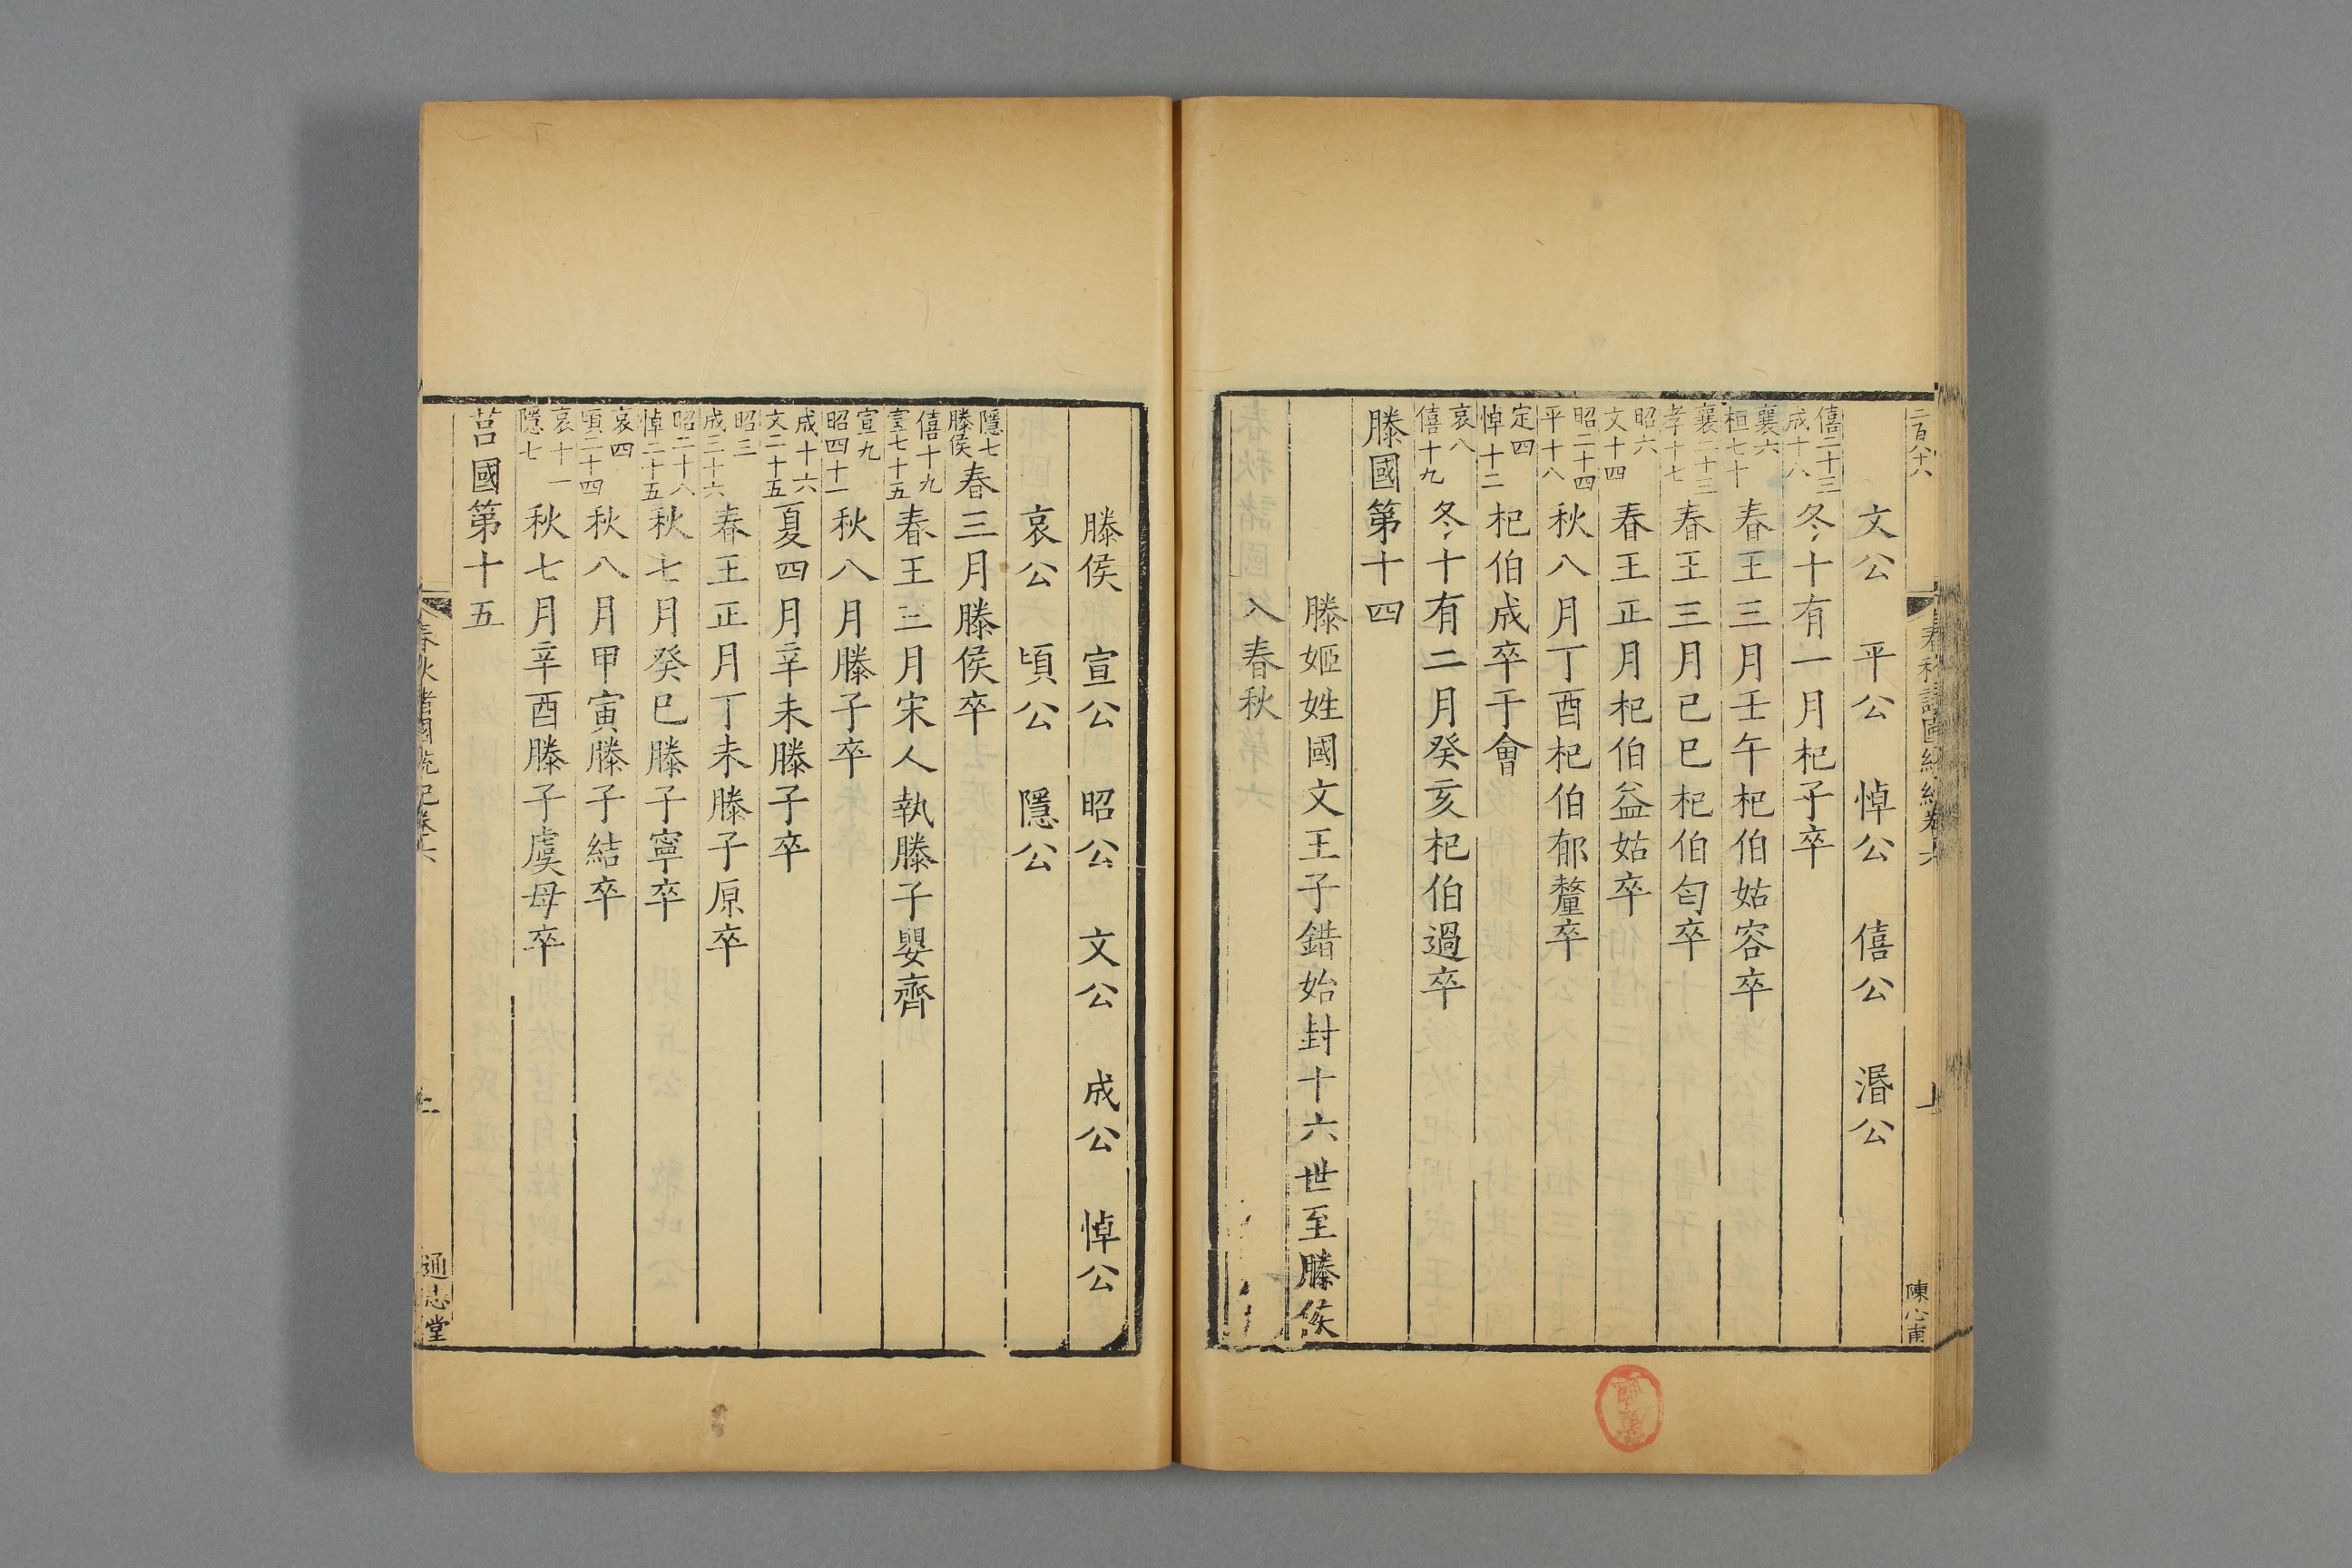 二百八十八
春秋諸國統紀卷六
上
陳心甫
文公　平公　悼公　僖公　湣公
僖二十三　成十八　冬十有一月杞子卒
襄六　桓七十　春王三月壬午杞伯姑容卒
襄二十三　孝十七　春王三月己巳杞伯匄卒
昭六　文十四　春王正月杞伯益姑卒
昭二十四　平十八　秋八月丁酉杞伯郁釐卒
定四　悼十二　杞伯成卒于會
哀八　僖十九　冬十有二月癸亥杞伯過卒
滕國第十四
滕姬姓國文王子錯始封十六世至滕侯
入春秋
滕侯　宣公　昭公　文公　成公　悼公
哀公　頃公　隱公
隱七　滕侯　春三月滕侯卒
僖十九　宣七十五　春王三月宋人執滕子嬰齊
宣九　昭四十一　秋八月滕子卒
成十六　文二十五　夏四月辛未滕子卒
昭三　成三十六　春王正月丁未滕子原卒
昭二十八　悼二十五　秋七月癸巳滕子寧卒
哀四　頃二十四　秋八月甲寅滕子結卒
哀十一　隱七　秋七月辛酉滕子虞母卒
莒國第十五
春秋諸國統紀卷六
通志堂